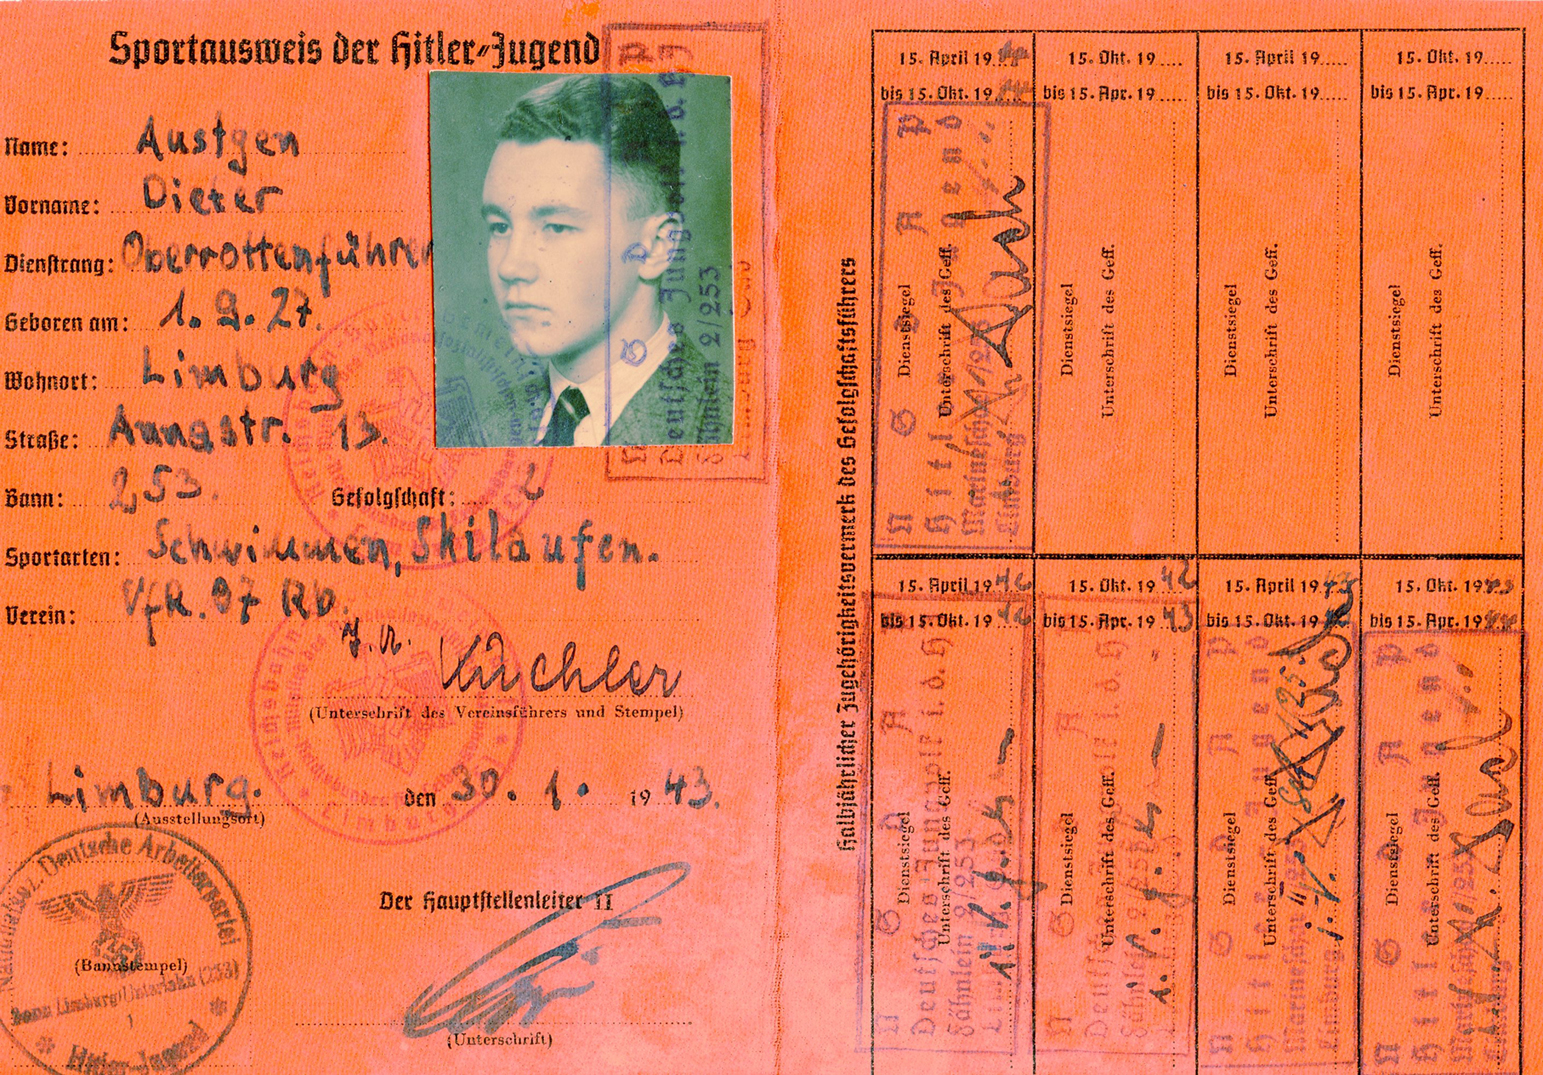 Sportausweis der Hitler-Jugend
Name: Austgen
Vorname: Dieter
Dienstrang: Oberrottenführer
Geboren am: 1. 9. 27.
Wohnort: Limburg
Straße: Annastr. 13.
Bann: 253. Gefolgschaft: 2
Sportarten: Schwimmen, Skilaufen.
Verein: VfR. 07
Küchler
(Unterschrift des Vereinsführers und Stempel)
Limburg. den 30. 1. 1943.
(Ausstellungsort)
Der Hauptstellenleiter II
(Bannstempel)
(Unterschrift)
Nationalsoz. Deutsche Arbeiterpartei
Bann Limburg/Unterlahn (253)
1
Hitler-Jugend
N S D A P
Deutsches Jungvolk i. d. HJ
Fähnlein 2/253
Halbjährlicher Zugehörigkeitsvermerk des Gefolgschaftsführers
15. April 1944
bis 15. Okt. 1944
Dienstsiegel
Unterschrift des Geff.
N S D A P
Hitler-Jugend
Limburg
15. Okt. 19
bis 15. Apr. 19
Dienstsiegel
Unterschrift des Geff.
15. April 19
bis 15. Okt. 19
Dienstsiegel
Unterschrift des Geff.
15. Okt. 19
bis 15. Apr. 19
Dienstsiegel
Unterschrift des Geff.
15. April 1942
bis 15. Okt. 1942
Dienstsiegel
Unterschrift des Geff.
N S D A P
Deutsches Jungvolk i. d. HJ
Fähnlein 2/253
15. Okt. 1942
bis 15. Apr. 1943
Dienstsiegel
Unterschrift des Geff.
15. April 1943
bis 15. Okt. 1943
Dienstsiegel
Unterschrift des Geff.
N S D A P
Hitler-Jugend
Limburg
15. Okt. 1943
bis 15. Apr. 1944
Dienstsiegel
Unterschrift des Geff.
N S D A P
Hitler-Jugend
Limburg